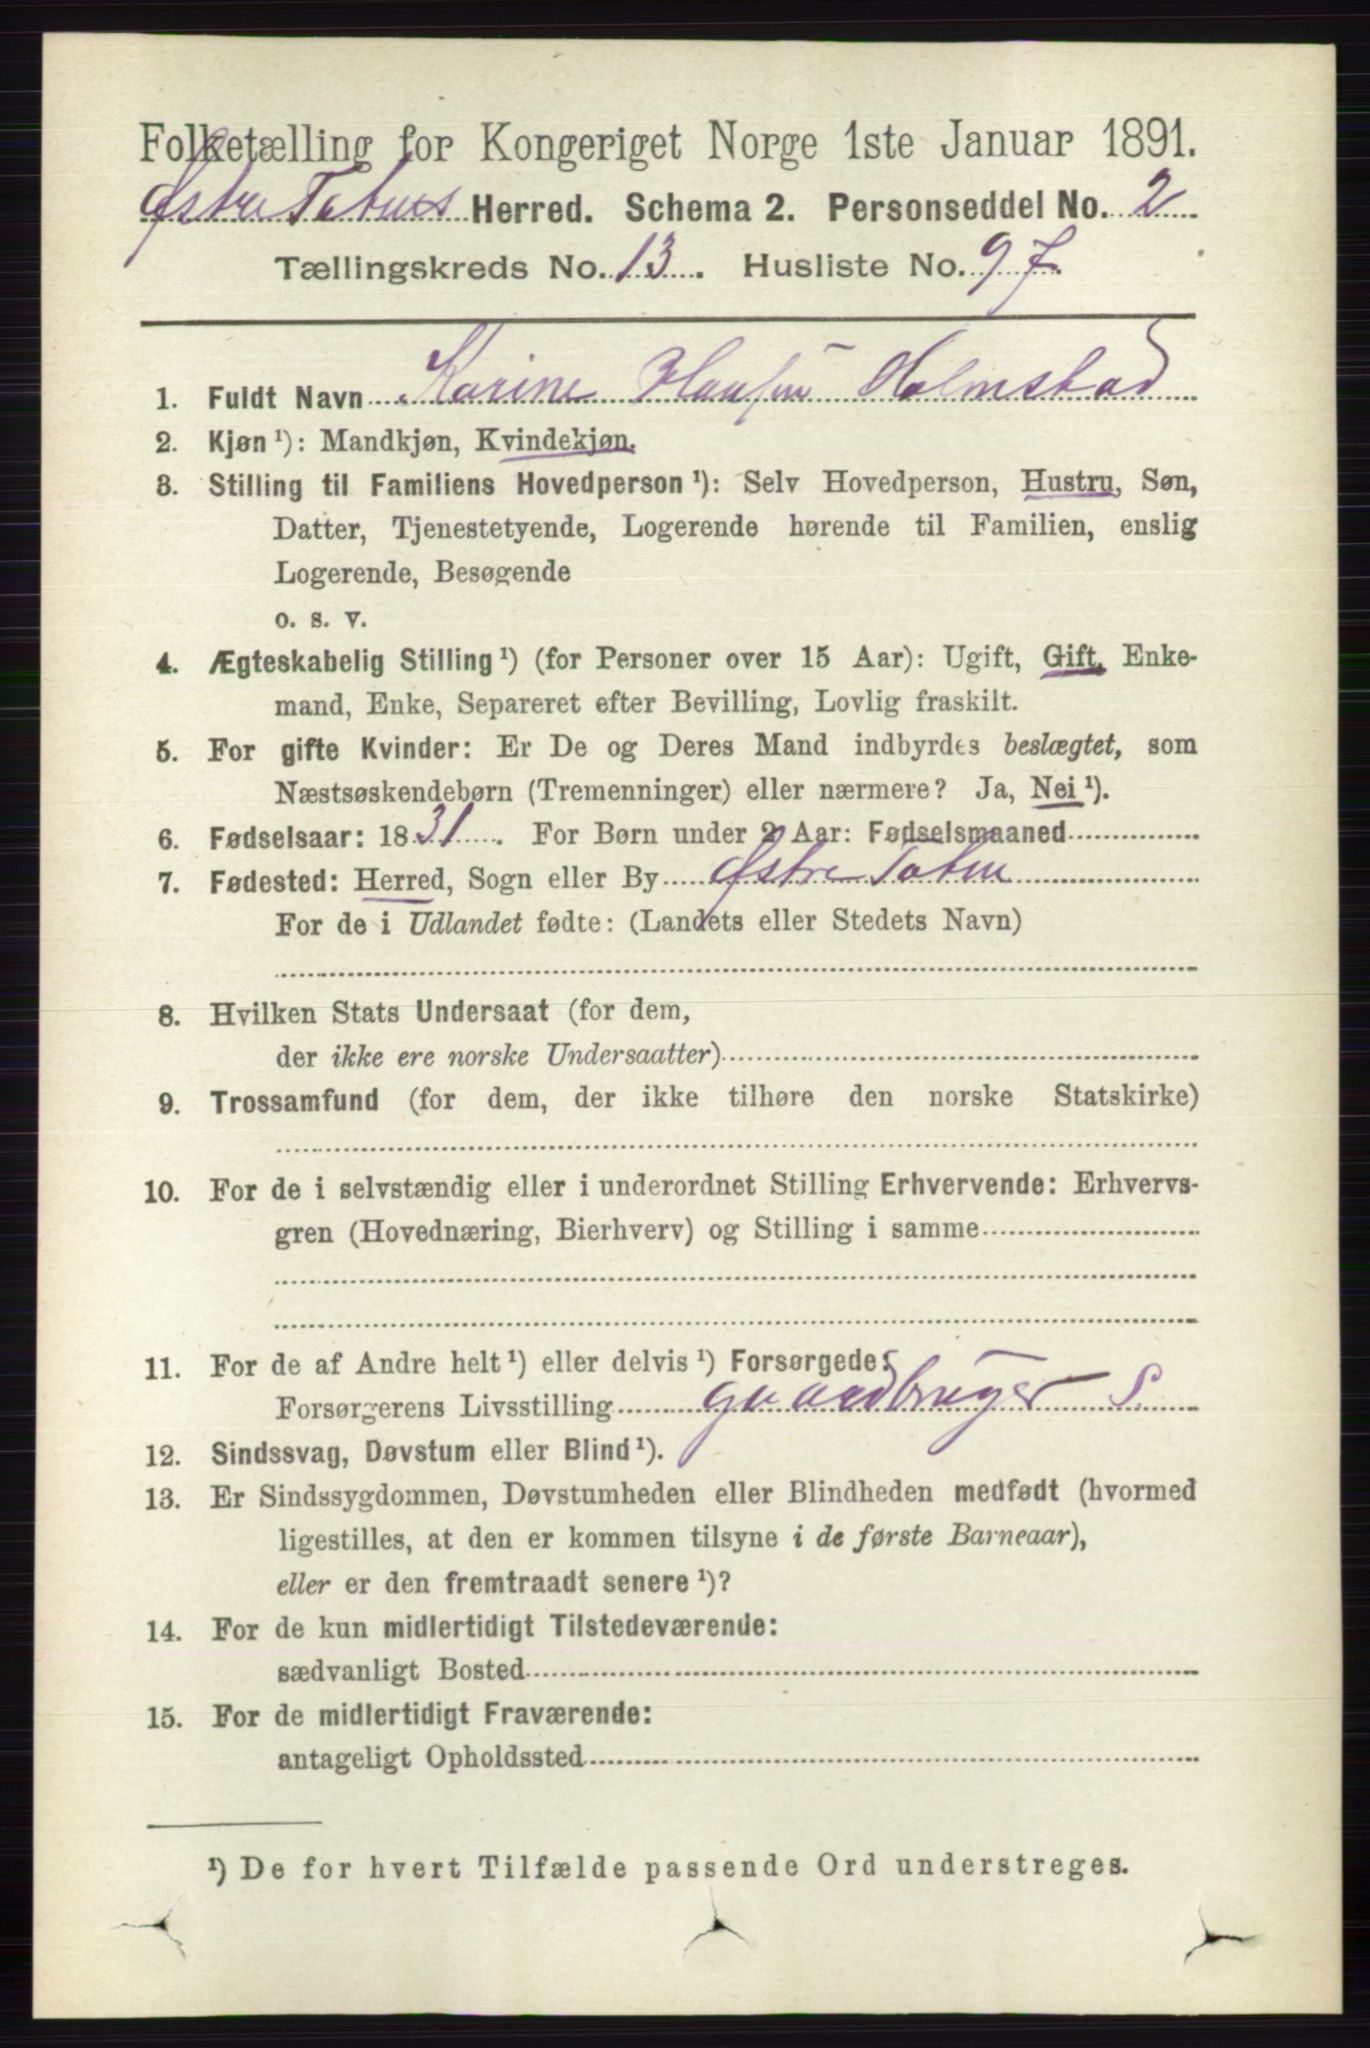 Folketælling for Kongeriget Norge 1ste Januar 1891.
Østre Totens Herred. Schema 2. Personseddel No. 2
Tællingskreds No. 13. Husliste No. 97.
1. Fuldt Navn Karine Hansen Holmstad
2. Kjøn ¹): Mandkjøn, Kvindekjøn.
3. Stilling til Familiens Hovedperson ¹): Selv Hovedperson, Hustru, Søn,
Datter, Tjenestetyende, Logerende hørende til Familien, enslig
Logerende, Besøgende
o. s. v.
4. Ægteskabelig Stilling ¹) (for Personer over 15 Aar): Ugift, Gift, Enke-
mand, Enke, Separeret efter Bevilling, Lovlig fraskilt.
5. For gifte Kvinder: Er De og Deres Mand indbyrdes beslægtet, som
Næstsøskendebørn (Tremenninger) eller nærmere? Ja, Nei ¹).
6. Fødselsaar: 1831. For Børn under 2 Aar: Fødselsmaaned
7. Fødested: Herred, Sogn eller By Østre Toten
For de i Udlandet fødte: (Landets eller Stedets Navn)
8. Hvilken Stats Undersaat (for dem,
der ikke ere norske Undersaatter)
9. Trossamfund (for dem, der ikke tilhøre den norske Statskirke)
10. For de i selvstændig eller i underordnet Stilling Erhvervende: Erhvervs-
gren (Hovednæring, Bierhverv) og Stilling i samme
11. For de af Andre helt ¹) eller delvis ¹) Forsørgede:
Forsørgerens Livsstilling gaardbruger S.
12. Sindssvag, Døvstum eller Blind ¹).
13. Er Sindssygdommen, Døvstumheden eller Blindheden medfødt (hvormed
ligestilles, at den er kommen tilsyne i de første Barneaar),
eller er den fremtraadt senere ¹)?
14. For de kun midlertidigt Tilstedeværende:
sædvanligt Bosted
15. For de midlertidigt Fraværende:
antageligt Opholdssted
¹) De for hvert Tilfælde passende Ord understreges.